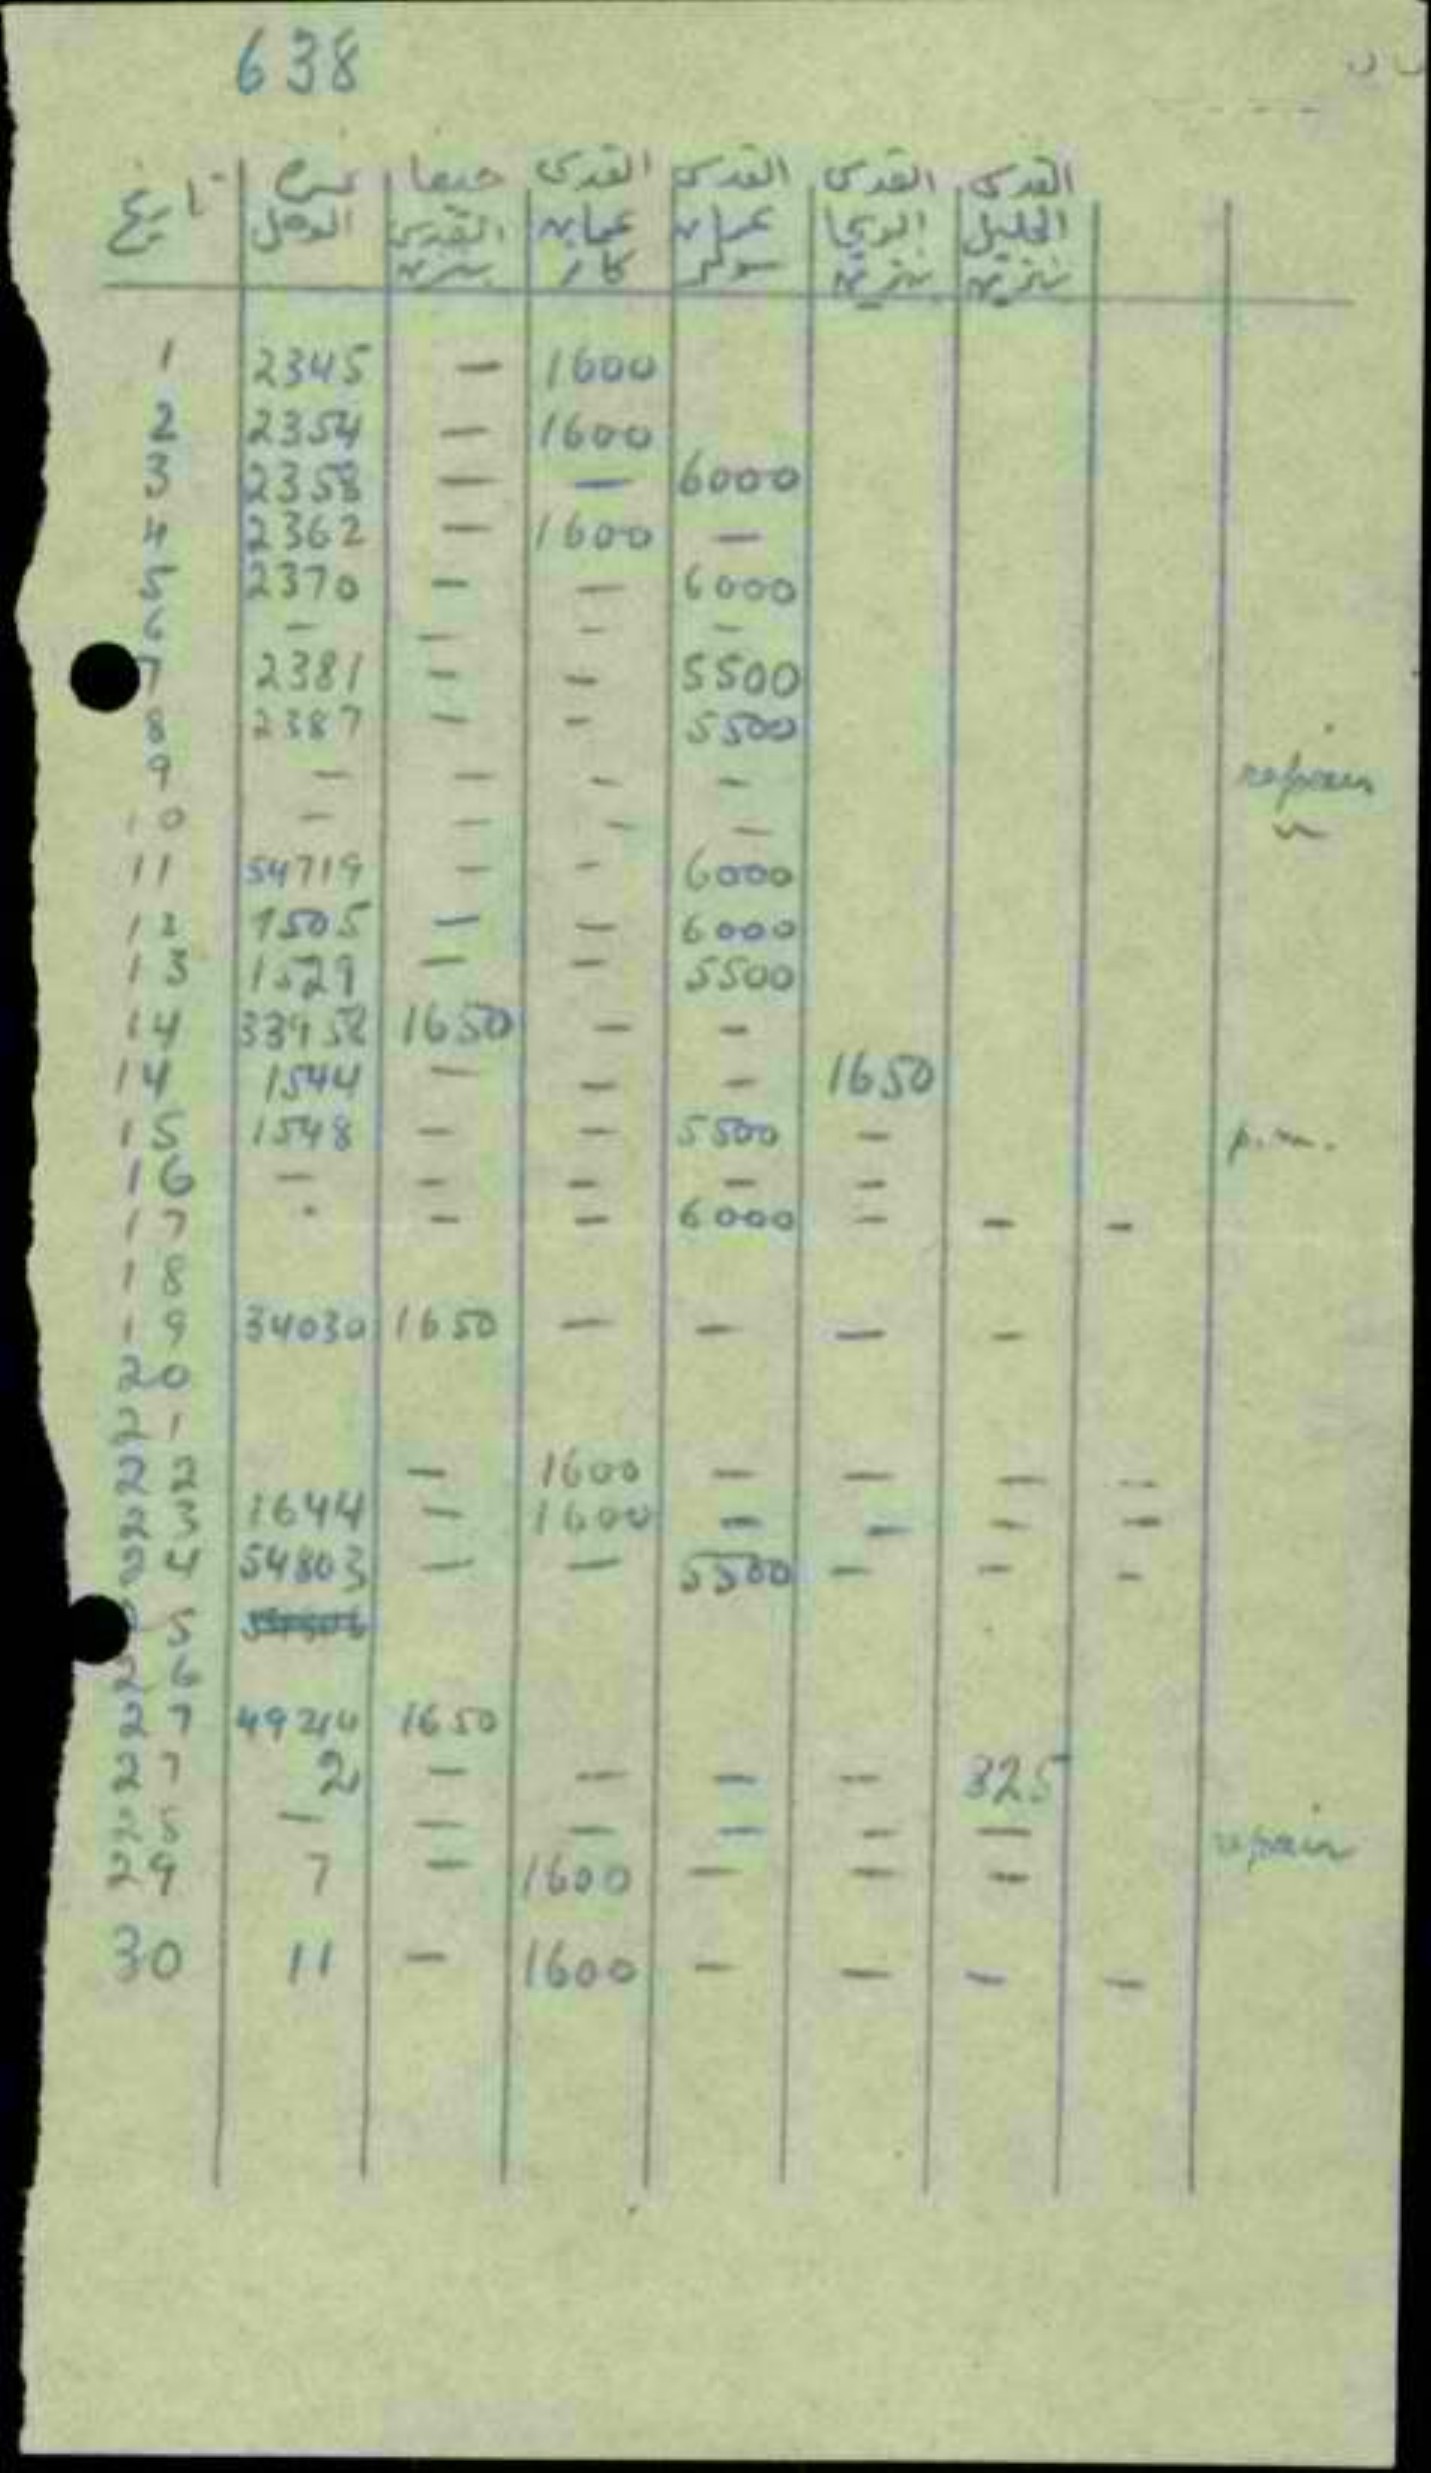 638
تاريخ | نمرة الوصل | حيفا القدس بنزين | القدس عمان كاز | القدس عمان سولر | القدس اريحا بنزين | القدس الخليل بنزين
1 2345 — 1600
2 2354 — 1600
3 2358 — — 6000
4 2362 — 1600 —
5 2370 — — 6000
6 — — — —
7 2381 — — 5500
8 2387 — — 5500
9 — — — — repair
10 — — — — "
11 54719 — — 6000
12 1505 — — 6000
13 1529 — — 5500
14 33958 1650 — —
14 1544 — — — 1650
15 1548 — — 5500 — p.m.
16 — — — — —
17 - — — 6000 — — —
18
19 34030 1650 — — — —
20
21
22 — 1600 — — — —
23 1644 — 1600 — — — —
24 54803 — — 5500 — — —
25
26
27 1650
27 2 — — — — 325
28 — — — — — — repair
29 7 — 1600 — — —
30 11 — 1600 — — — —